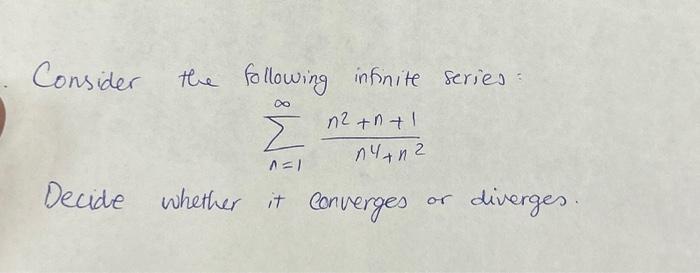 Consider the following infinite series:
∞
∑ n²+n+1 / n⁴+n²
n=1
Decide whether it converges or diverges.